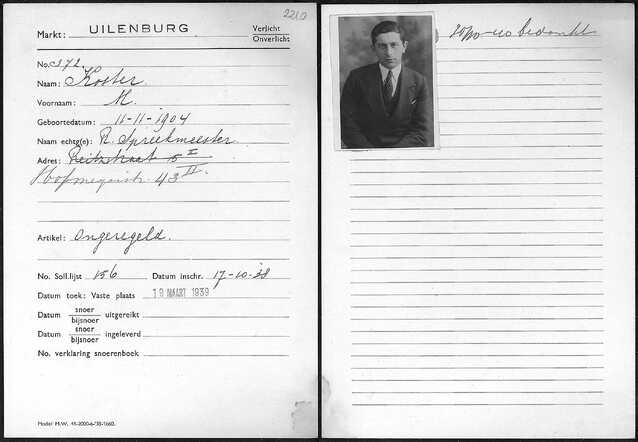 2210
Markt: UILENBURG Verlicht
Onverlicht
No. 372.
Naam: Koster
Voornaam: M.
Geboortedatum: 11-11-1904
Naam echtg(e): R. Spreekmeester
Adres: Reitzstraat 5 I
Hofmeyrstr. 43 II.
Artikel: Ongeregeld.
No. Soll.lijst 156 Datum inschr. 17-10-38
Datum toek: Vaste plaats 18 MAART 1939
Datum snoer
bijsnoer uitgereikt
Datum snoer
bijsnoer ingeleverd
No. verklaring snoerenboek
Model M.W. 41-2000-6-'38-1660.
bedankt